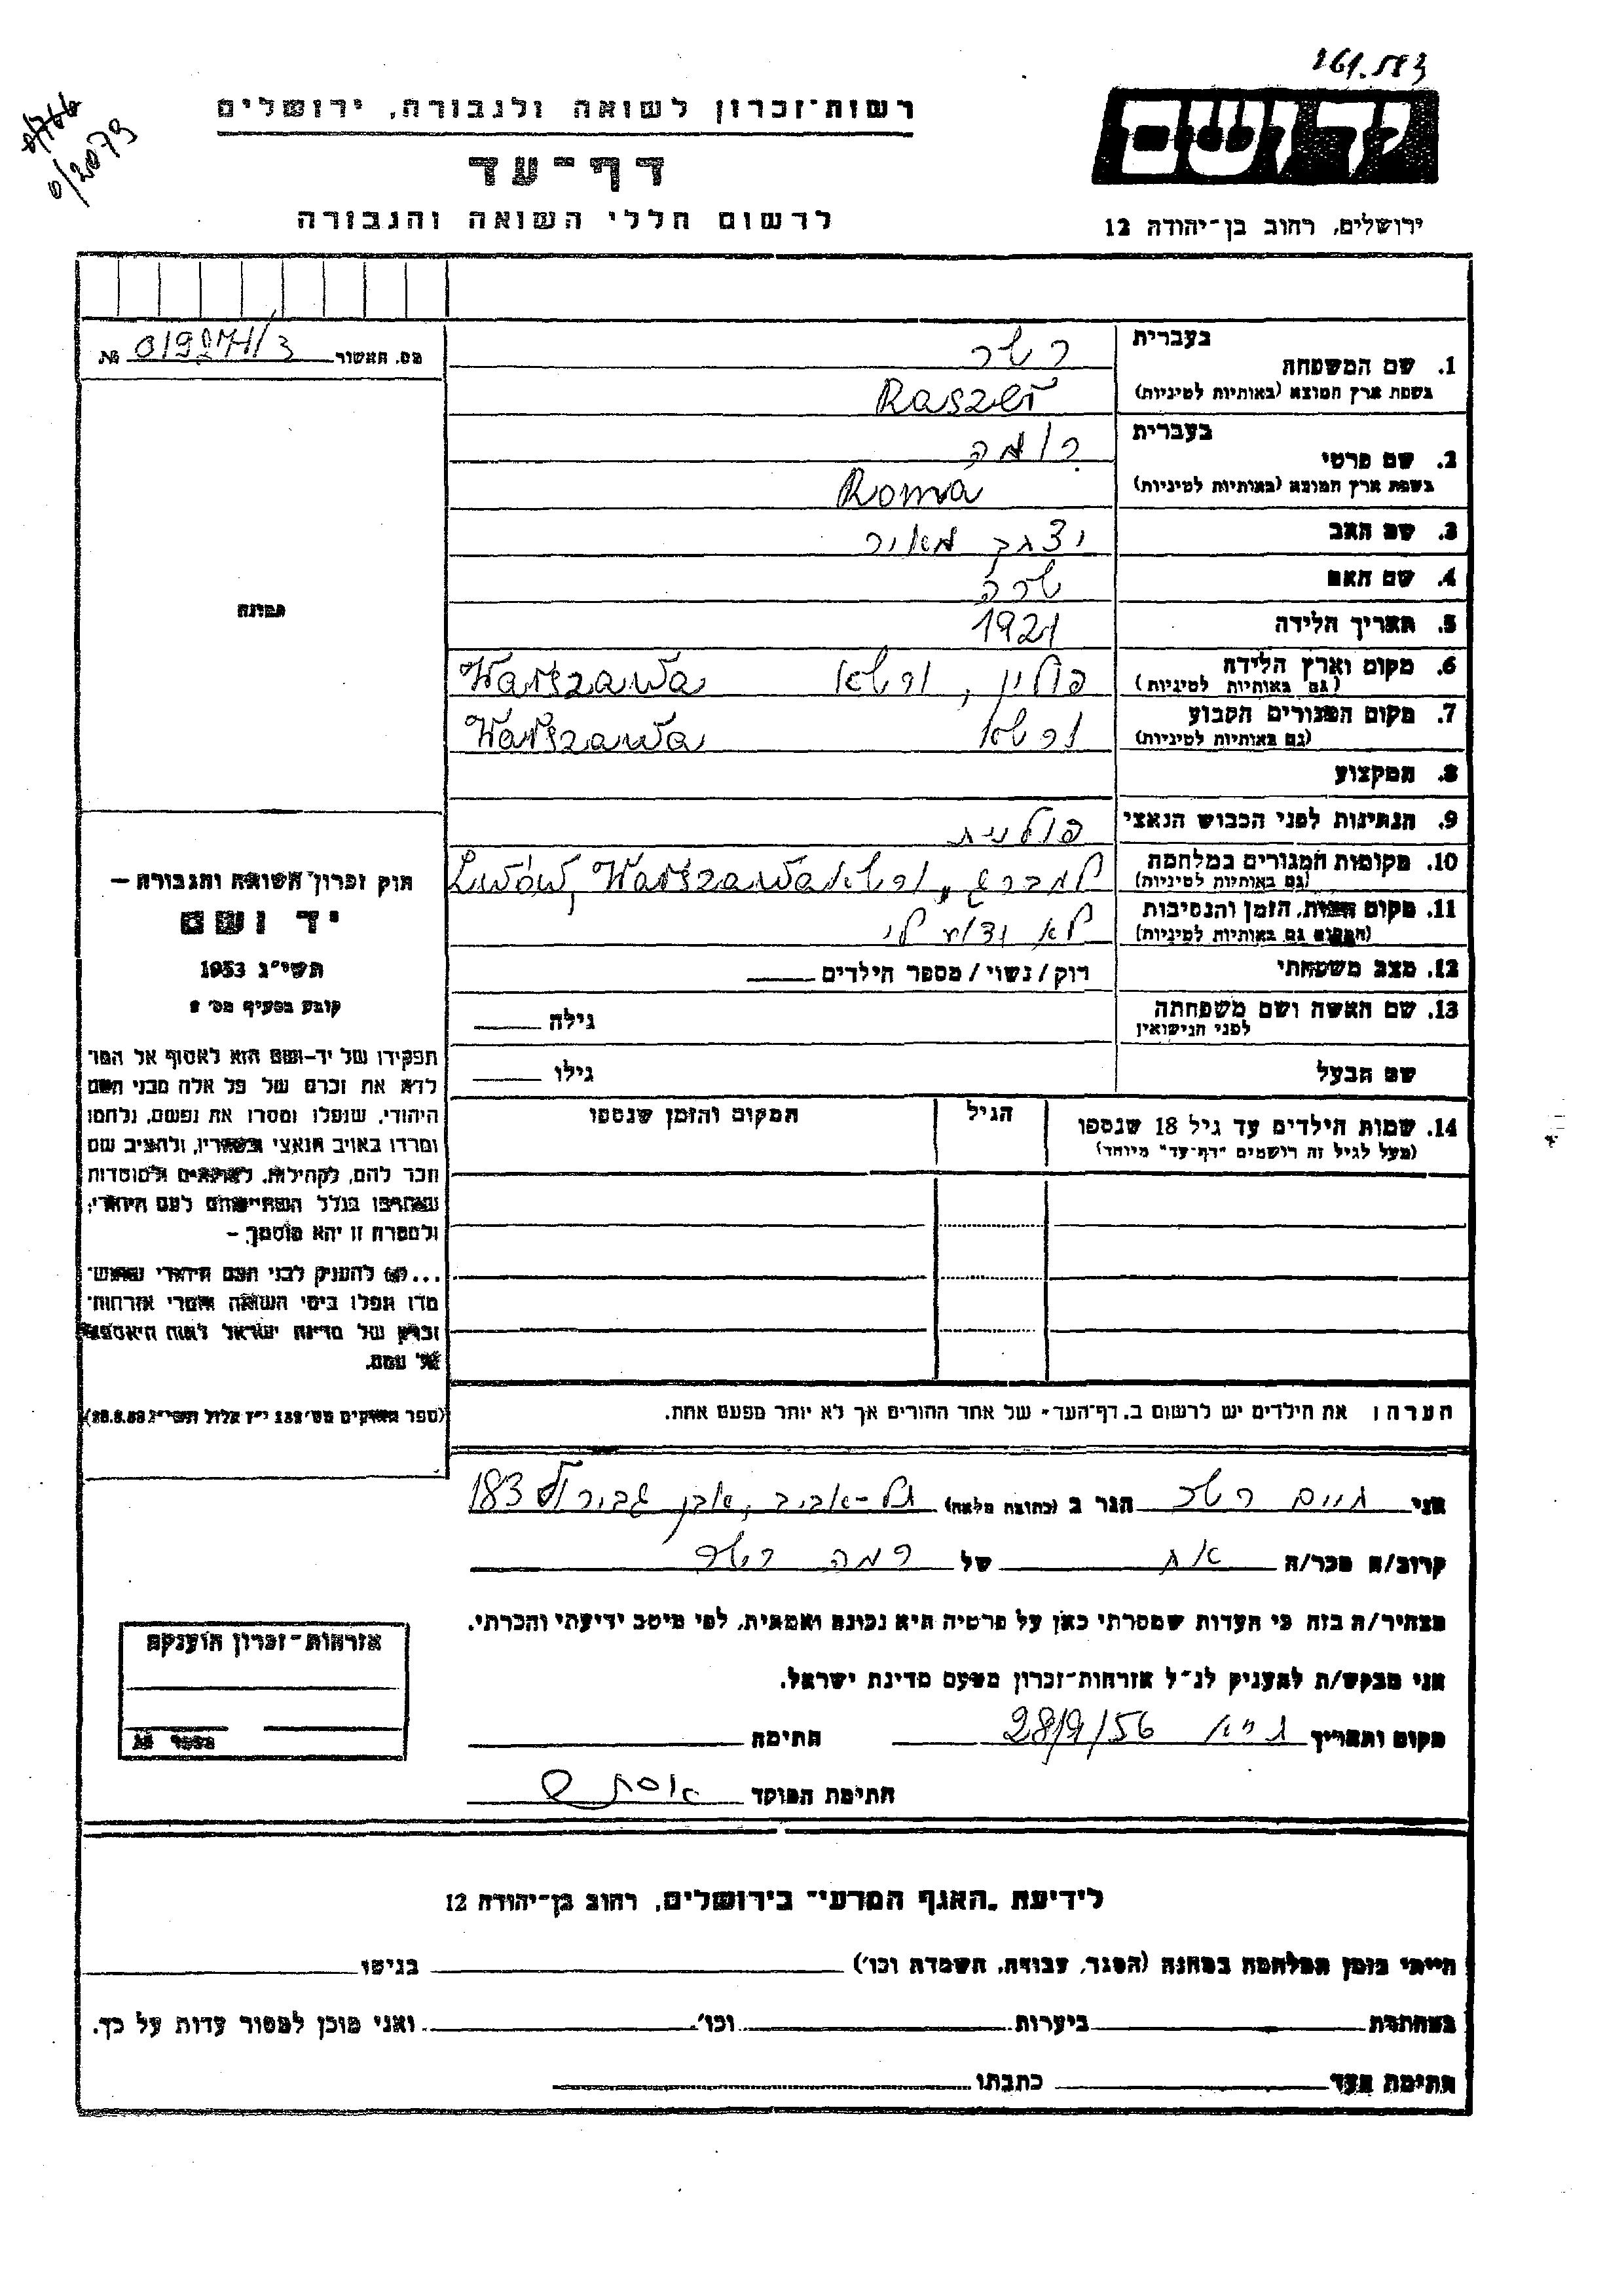 161.583
0/766
0/2079
יד ושם
רשות־זכרון לשואה ולגבורה, ירושלים
דף־עד
לרשום חללי השואה והגבורה
ירושלים, רחוב בן־יהודה 12
מס. האשור № 01927H/3
תמונה
בעברית
1. שם המשפחה רשר
בשפת ארץ המוצא (באותיות לטיניות) Raszer
בעברית
2. שם פרטי רומה
בשפת ארץ המוצא (באותיות לטיניות) Roma
3. שם האב יצחק מאיר
4. שם האם שרה
5. תאריך הלידה 1921
6. מקום וארץ הלידה פולין, ורשא Warszawa
(גם באותיות לטיניות)
7. מקום המגורים הקבוע ורשא Warszawa
(גם באותיות לטיניות)
8. המקצוע
9. הנתינות לפני הכבוש הנאצי פולנית
10. מקומות המגורים במלחמה למברג, ורשא Lwów, Warszawa
(גם באותיות לטיניות)
11. מקום המות, הזמן והנסיבות לא ידוע לי
(המקום גם באותיות לטיניות)
12. מצב משפחתי רוק/נשוי/מספר הילדים
13. שם האשה ושם משפחתה גילה
לפני הנישואין
שם הבעל גילו
14. שמות הילדים עד גיל 18 שנספו הגיל המקום והזמן שנספו
(מעל לגיל זה רושמים "דף־עד" מיוחד)
הערה: את הילדים יש לרשום ב"דף־העד" של אחד ההורים אך לא יותר מפעם אחת.
חוק זכרון השואה והגבורה —
יד ושם
תשי"ג 1953
קובע בסעיף מס' 2
תפקידו של יד־ושם הוא לאסוף אל המו־
לדת את זכרם של כל אלה מבני העם
היהודי, שנפלו ומסרו את נפשם, נלחמו
ומרדו באויב הנאצי ובעוזריו, ולהציב שם
וזכר להם, לקהילות, לארגונים ולמוסדות
שנחרבו בגלל השתייכותם לעם היהודי;
ולמטרה זו יהא מוסמך —
...(6) להעניק לבני העם היהודי שהוש־
מדו ונפלו בימי השואה והמרי אזרחות־
זכרון של מדינת ישראל לאות היאספם
אל עמם.
אני חיים רשר הגר ב (כתובת מלאה) תל-אביב, אבן גבירול 183
קרוב/ה מכר/ה אח של רמה רשר
מצהיר/ה בזה כי העדות שמסרתי כאן על פרטיה היא נכונה ואמתית, לפי מיטב ידיעתי והכרתי.
אני מבקש/ת להעניק לנ"ל אזרחות־זכרון מטעם מדינת ישראל.
מקום ותאריך ת"א 28/9/56 חתימה
חתימת הפוקד
אזרחות־זכרון הוענקה
מספר №
לידיעת "האגף המדעי" בירושלים, רחוב בן־יהודה 12
הייתי בזמן המלחמה במחנה (הסגר, עבודה, השמדה וכו') בגיטו
במחתרת ביערות וכו' ואני מוכן למסור עדות על כך.
חתימת העד כתבתו